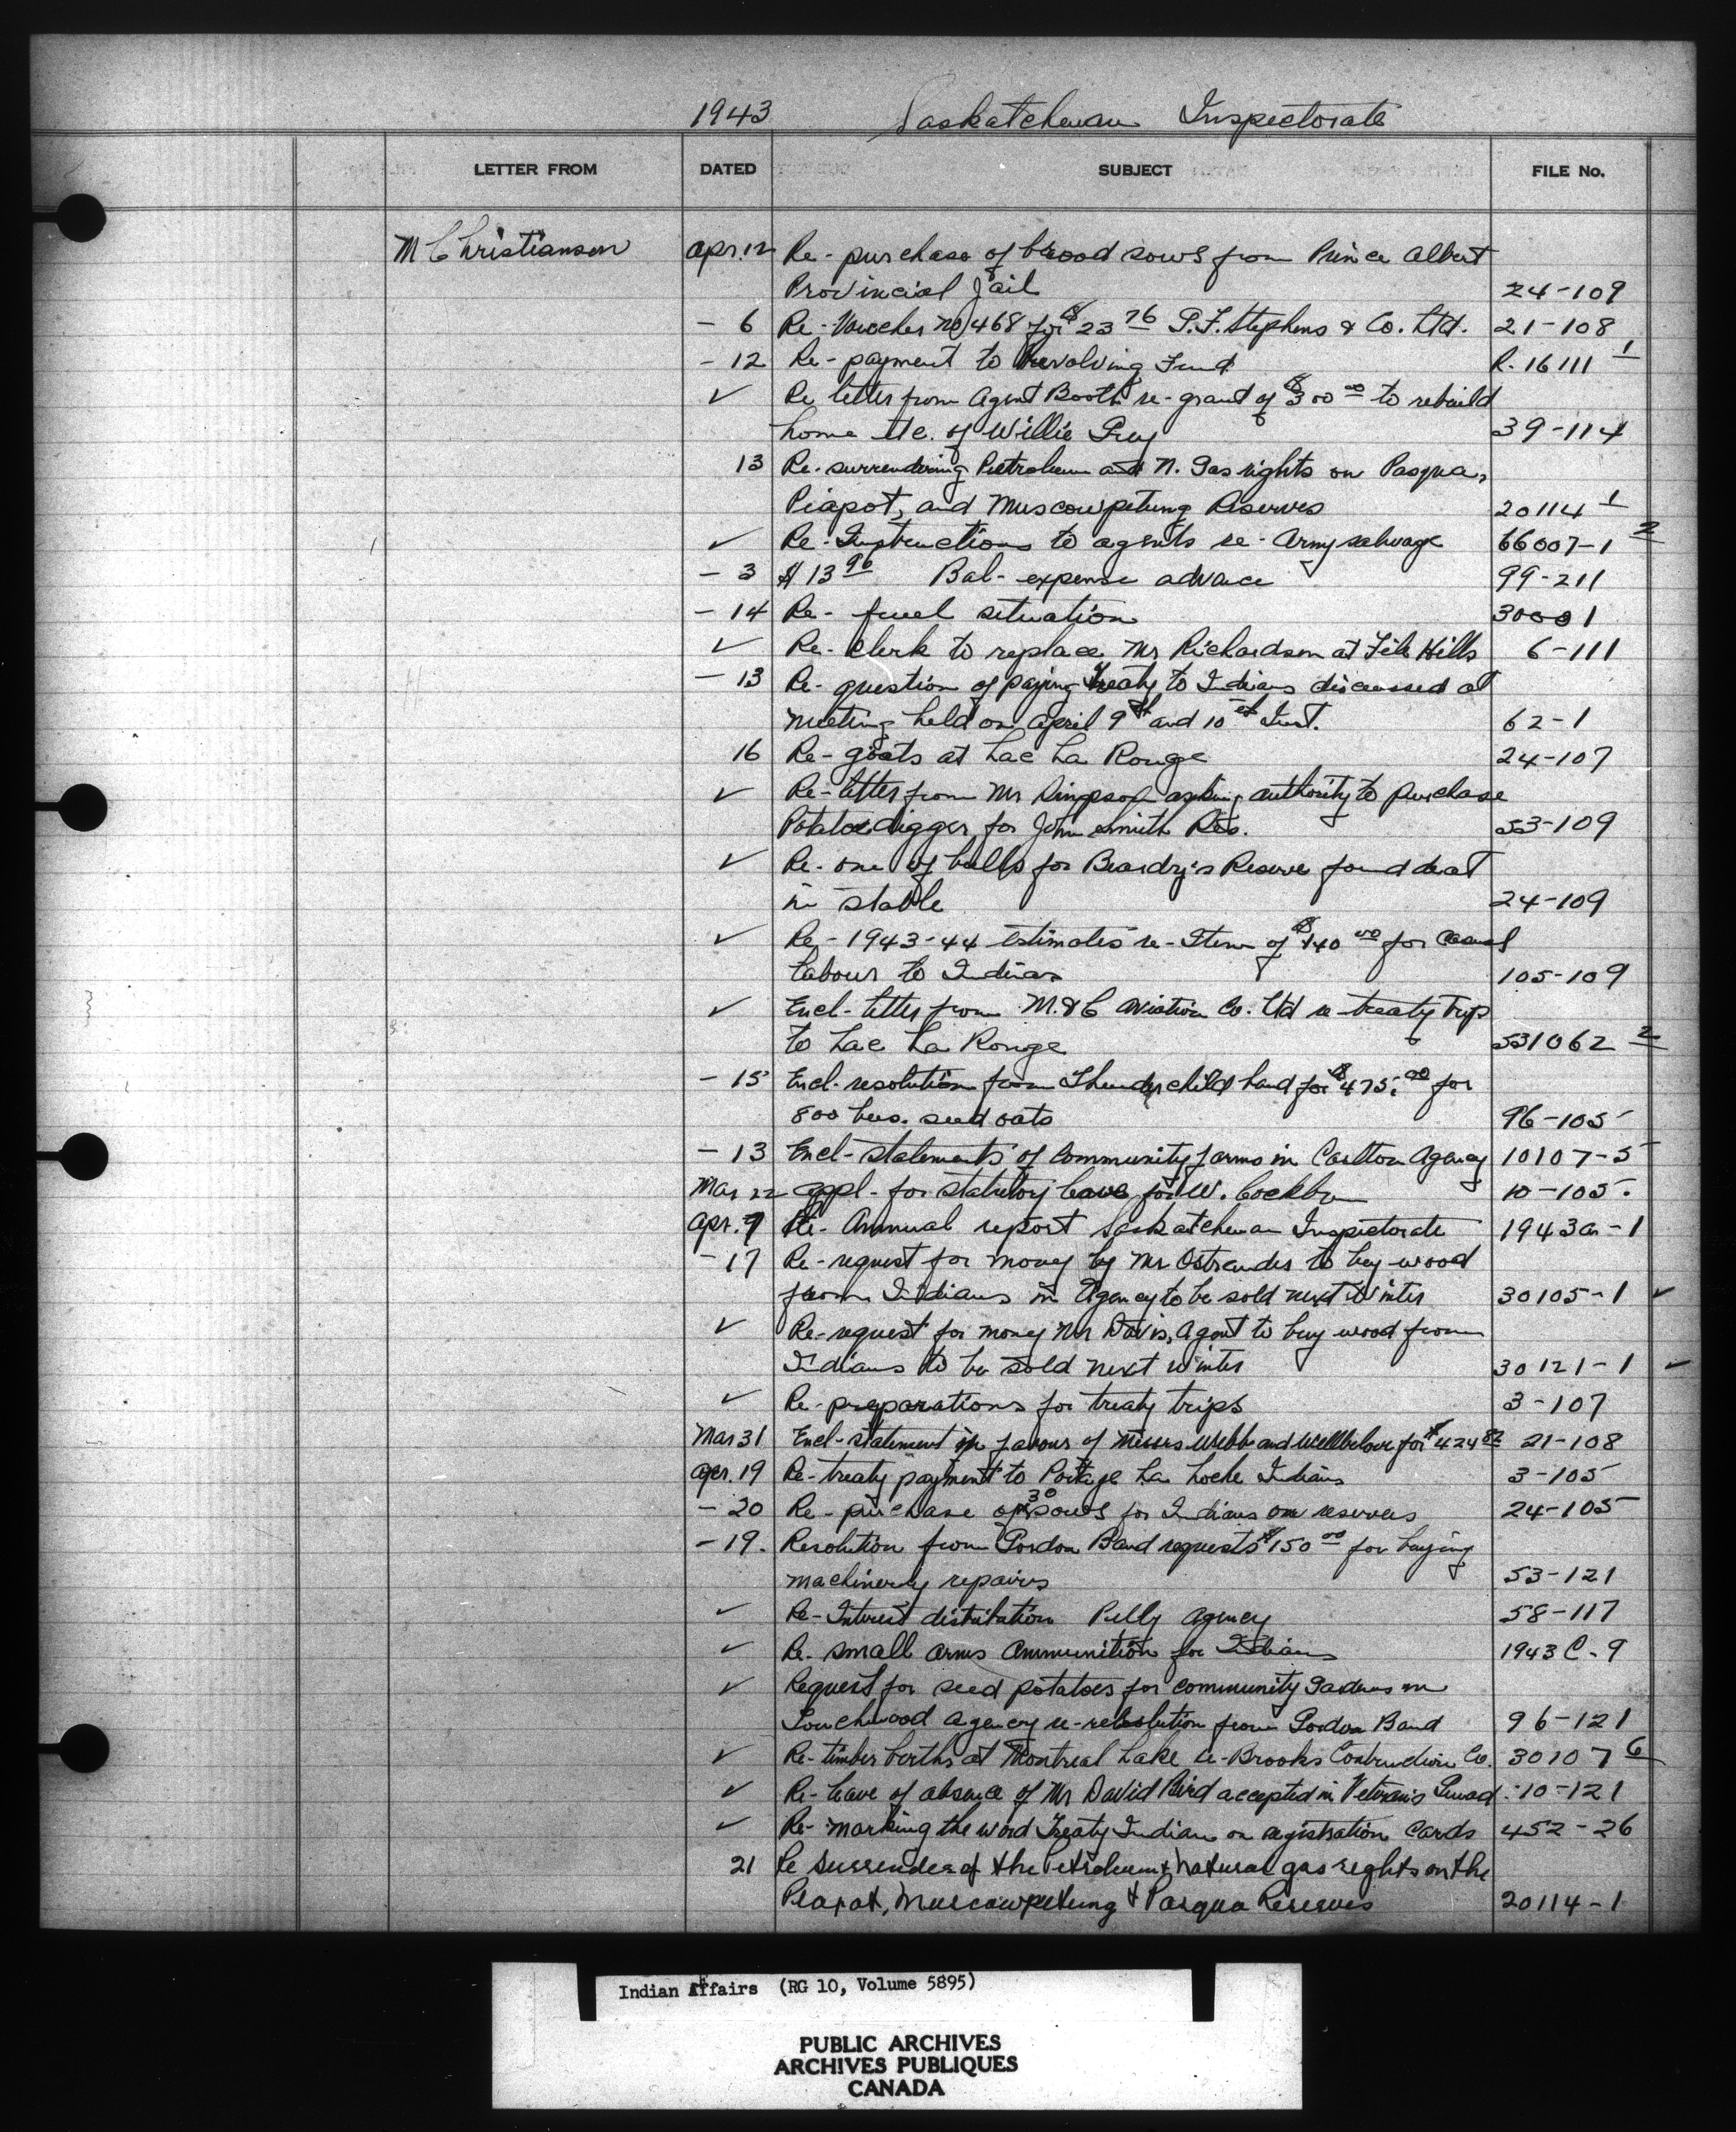 1943 Saskatchewan Inspectorate
LETTER FROM DATED SUBJECT FILE No.
M Christianson Apr. 12 Re- purchase of brood sows from Prince Albert
Provincial Jail 24-109
- 6 Re- Voucher No 1468 for $23 76 P.F. Stephens & Co. Ltd. 21-108
- 12 Re- payment to Revolving Fund R. 16111 1
✓ Re letter from Agent Booth re- grant of $300 00 to rebuild
home etc. of Willie 39-114
13 Re- surrendering Petroleum and N. Gas rights on Pasqua,
Piapot, and Muscowpetung Reserves 20114 1
✓ Re- Instructions to agents re- Army salvage 66007-1 2
- 3 $13 96 Bal- expense advance 99-211
- 14 Re- fuel situation 30001
✓ Re- Clerk to replace Mr Richardson at File Hills 6-111
- 13 Re- question of paying Treaty to Indians discussed at
meeting held on April 9th and 10th Inst. 62-1
16 Re- goats at Lac La Ronge 24-107
✓ Re- letter from Mr asking authority to purchase
Potatoe digger for John Smith Res. 53-109
✓ Re- one of bulls for Beardy's Reserve found deat
in stable 24-109
✓ Re- 1943-44 estimates re- Item of $140 00 for Casual
Labour to Indians 105-109
✓ Encl- letter from M.&C Aviation Co. Ltd re- treaty trip
to Lac La Ronge 531062 2
- 15 Encl- resolution from Thunderchild band for $475. 00 for
800 bus. seed oats 96-105
- 13 Encl- statements of Community farms in Carlton Agency 10107-5
Mar 22 Appl- for statutory leave for W. Cockburn 10-105.
Apr. 9 Re- Annual report Saskatchewan Inspectorate 1943a-1
- 17 Re- request for money by Mr Ostrander to buy wood
from Indians in Agency to be sold next Winter 30105-1 ✓
✓ Re- request for money Mr Davis, Agent to buy wood from
Indians to be sold next winter 30121-1 ✓
✓ Re- preparations for treaty trips 3-107
Mar 31 Encl- statement in favour of Messrs Webb and Wellbelove for $424 82 21-108
Apr. 19 Re- treaty payment to Portage La Loche Indians 3-105
- 20 Re- purchase of 30 sows for Indians on reserves 24-105
- 19. Resolution from Gordon Band requests $150 00 for buying
machinery repairs 53-121
✓ Re- Interest distribution Pelly Agency 58-117
✓ Re- small arms Ammunition for Indians 1943 C-9
✓ Request for seed potatoes for community Gardens in
Touchwood Agency re- resolution from Gordon Band 96-121
✓ Re- timber berths at Montreal Lake re- Brooks Construction Co. 30107 6
✓ Re- leave of absence of Mr David Bird accepted in Veteran's Guard 10-121
✓ Re- marking the word Treaty Indian on registration Cards 452-26
21 Re Surrender of the Petroleum & natural gas rights on the
Piapot, Muscowpetung & Pasqua Reserves 20114-1
Indian Affairs (RG 10, Volume 5895)
PUBLIC ARCHIVES
ARCHIVES PUBLIQUES
CANADA